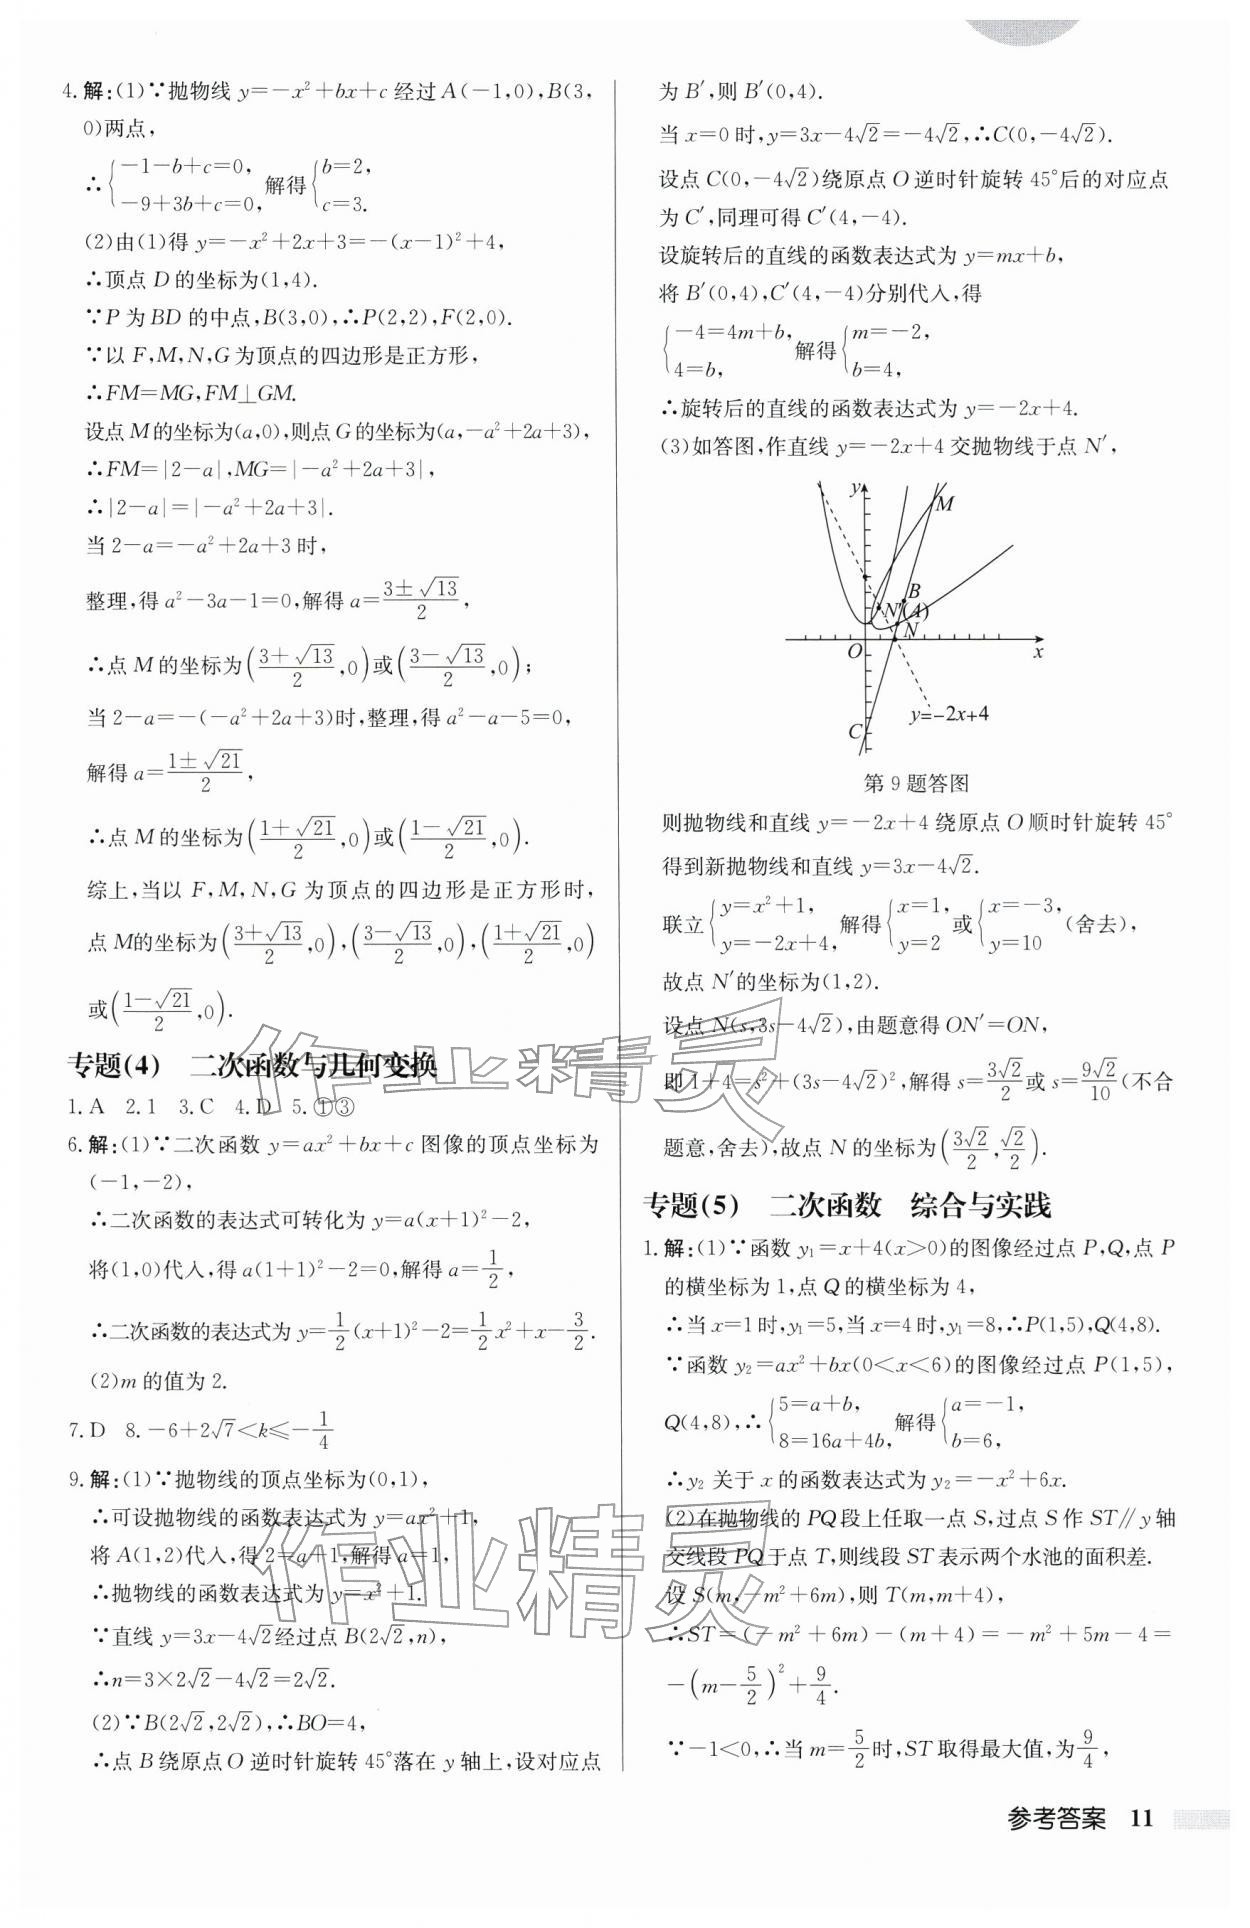 4.解:(1)∵抛物线 y=-x²+bx+c 经过 A(-1,0),B(3,
0)两点,
∴{-1-b+c=0, -9+3b+c=0, 解得{b=2, c=3.
(2)由(1)得 y=-x²+2x+3=-(x-1)²+4,
∴顶点 D 的坐标为(1,4).
∵P 为 BD 的中点,B(3,0),∴P(2,2),F(2,0).
∵以 F,M,N,G 为顶点的四边形是正方形,
∴FM=MG,FM⊥GM.
设点 M 的坐标为(a,0),则点 G 的坐标为(a,-a²+2a+3),
∴FM=|2-a|,MG=|-a²+2a+3|,
∴|2-a|=|-a²+2a+3|.
当 2-a=-a²+2a+3 时,
整理,得 a²-3a-1=0,解得 a=(3±√13)/2,
∴点 M 的坐标为((3+√13)/2,0)或((3-√13)/2,0);
当 2-a=-(-a²+2a+3)时,整理,得 a²-a-5=0,
解得 a=(1±√21)/2,
∴点 M 的坐标为((1+√21)/2,0)或((1-√21)/2,0).
综上,当以 F,M,N,G 为顶点的四边形是正方形时,
点 M的坐标为((3+√13)/2,0),((3-√13)/2,0),((1+√21)/2,0)
或((1-√21)/2,0).
专题(4) 二次函数与几何变换
1.A 2.1 3.C 4.D 5.①③
6.解:(1)∵二次函数 y=ax²+bx+c 图像的顶点坐标为
(-1,-2),
∴二次函数的表达式可转化为 y=a(x+1)²-2,
将(1,0)代入,得 a(1+1)²-2=0,解得 a=1/2,
∴二次函数的表达式为 y=1/2(x+1)²-2=1/2x²+x-3/2.
(2)m 的值为 2.
7.D 8.-6+2√7<k≤-1/4
9.解:(1)∵抛物线的顶点坐标为(0,1),
∴可设抛物线的函数表达式为 y=ax²+1,
将 A(1,2)代入,得 2=a+1,解得 a=1,
∴抛物线的函数表达式为 y=x²+1.
∵直线 y=3x-4√2经过点 B(2√2,n),
∴n=3×2√2-4√2=2√2.
(2)∵B(2√2,2√2),∴BO=4,
∴点 B 绕原点 O 逆时针旋转 45°落在 y 轴上,设对应点
为 B′,则 B′(0,4).
当 x=0 时,y=3x-4√2=-4√2,∴C(0,-4√2).
设点 C(0,-4√2)绕原点 O 逆时针旋转 45°后的对应点
为 C′,同理可得 C′(4,-4).
设旋转后的直线的函数表达式为 y=mx+b,
将 B′(0,4),C′(4,-4)分别代入,得
{-4=4m+b, 4=b, 解得{m=-2, b=4,
∴旋转后的直线的函数表达式为 y=-2x+4.
(3)如答图,作直线 y=-2x+4 交抛物线于点 N′,
y
M
B
N′(A)
N
O
x
y=-2x+4
C
第 9 题答图
则抛物线和直线 y=-2x+4 绕原点 O 顺时针旋转 45°
得到新抛物线和直线 y=3x-4√2.
联立{y=x²+1, y=-2x+4, 解得{x=1, y=2 或{x=-3, y=10 (舍去),
故点 N′的坐标为(1,2).
设点 N(s,3s-4√2),由题意得 ON′=ON,
即 1+4=s²+(3s-4√2)²,解得 s=3√2/2或 s=9√2/10(不合
题意,舍去),故点 N 的坐标为(3√2/2,√2/2).
专题(5) 二次函数 综合与实践
1.解:(1)∵函数 y₁=x+4(x>0)的图像经过点 P,Q,点 P
的横坐标为 1,点 Q 的横坐标为 4,
∴当 x=1 时,y₁=5,当 x=4 时,y₁=8,∴P(1,5),Q(4,8).
∵函数 y₂=ax²+bx(0<x<6)的图像经过点 P(1,5),
Q(4,8),∴{5=a+b, 8=16a+4b, 解得{a=-1, b=6,
∴y₂ 关于 x 的函数表达式为 y₂=-x²+6x.
(2)在抛物线的 PQ 段上任取一点 S,过点 S 作 ST∥y 轴
交线段 PQ 于点 T,则线段 ST 表示两个水池的面积差.
设 S(m,-m²+6m),则 T(m,m+4),
∴ST=(-m²+6m)-(m+4)=-m²+5m-4=
-(m-5/2)²+9/4.
∵-1<0,∴当 m=5/2时,ST 取得最大值,为9/4,
参考答案 11
作业精灵
作业精灵